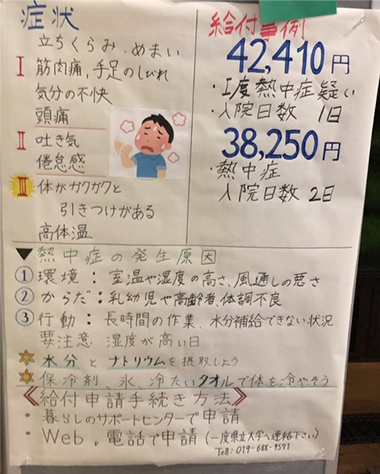 症状
立ちくらみ、めまい
I 筋肉痛、手足のしびれ
気分の不快
頭痛
II 吐き気
倦怠感
III 体がガクガクと
引きつけがある
高体温
給付事例
42,410円
・I度熱中症疑い
・入院日数 1日
38,250円
・熱中症
入院日数 2日
▼熱中症の発生原因
①環境:室温や湿度の高さ、風通しの悪さ
②からだ:乳幼児や高齢者、体調不良
③行動:長時間の作業、水分補給できない状況
要注意 湿度が高い日
水分とナトリウムを摂取しよう
保冷剤、氷、冷たいタオルで体を冷やそう
《給付申請手続き方法》
・暮らしのサポートセンターで申請
・Web。電話で申請(一度県立大学へ連絡下さい)
Tell:019-688-9591